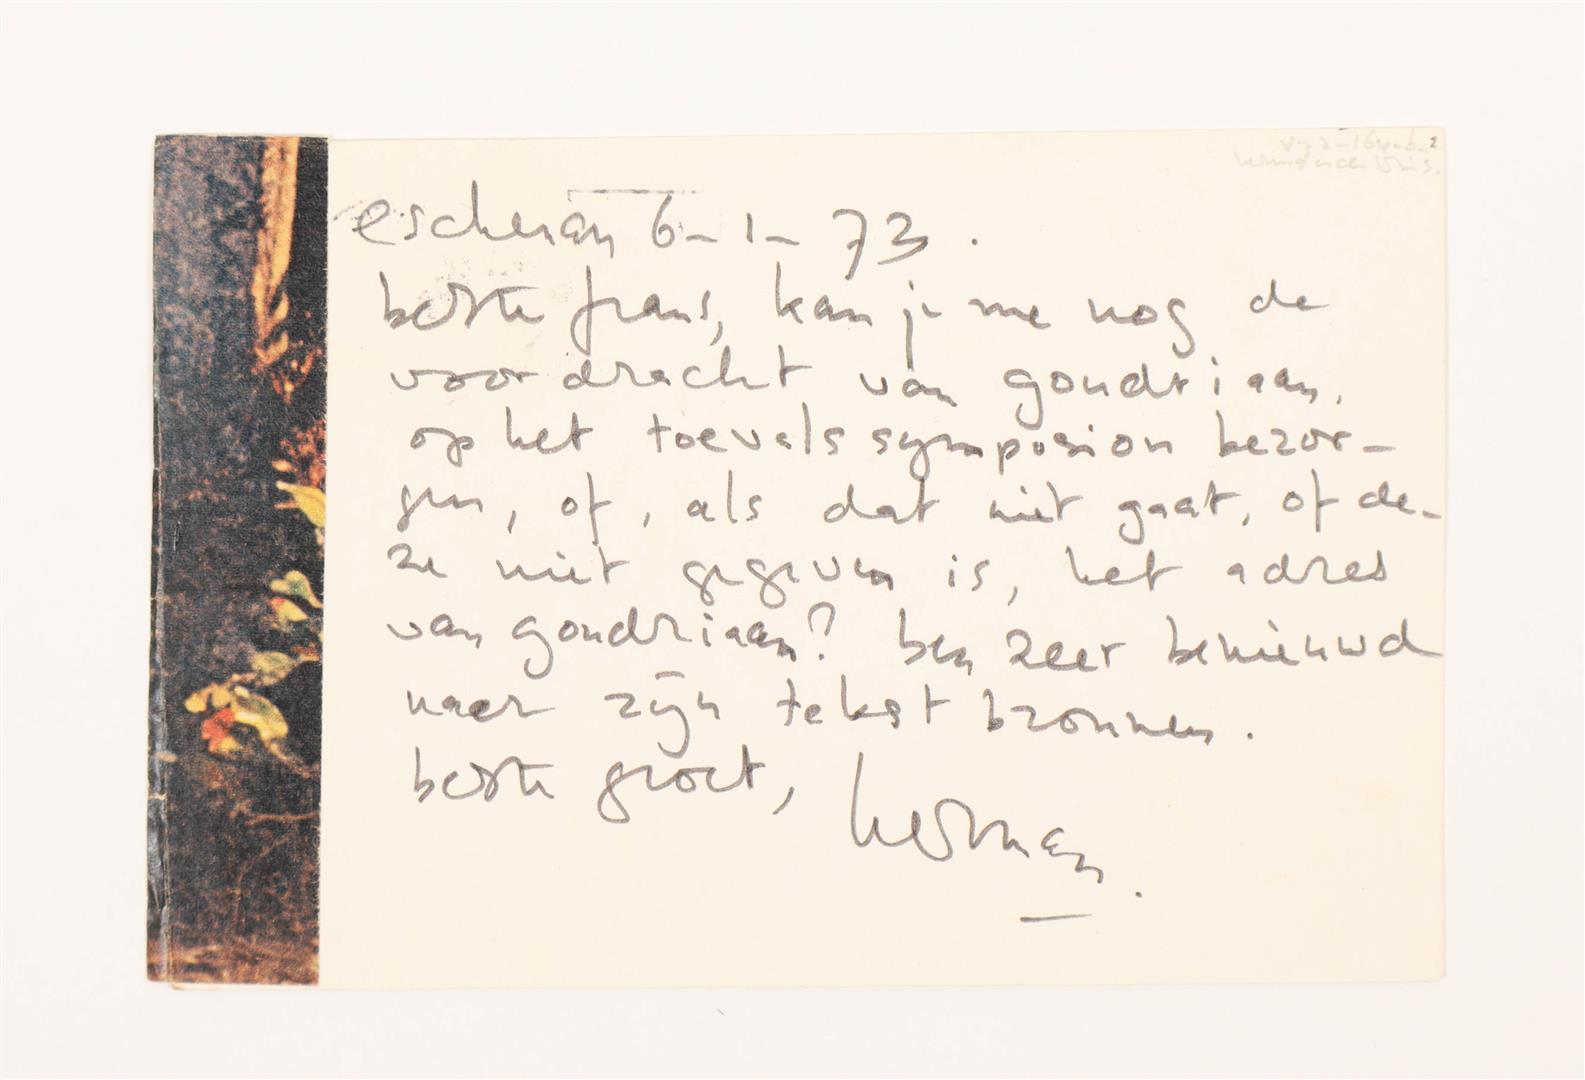 eschenau 6-1-73.
beste frans, kan je me nog de
voordracht van goudriaan,
op het toevalssymposion bezor-
gen, of, als dat niet gaat, of de-
ze niet gegeven is, het adres
van goudriaan? ben zeer benieuwd
naar zijn tekst bronnen.
beste groet, herman.